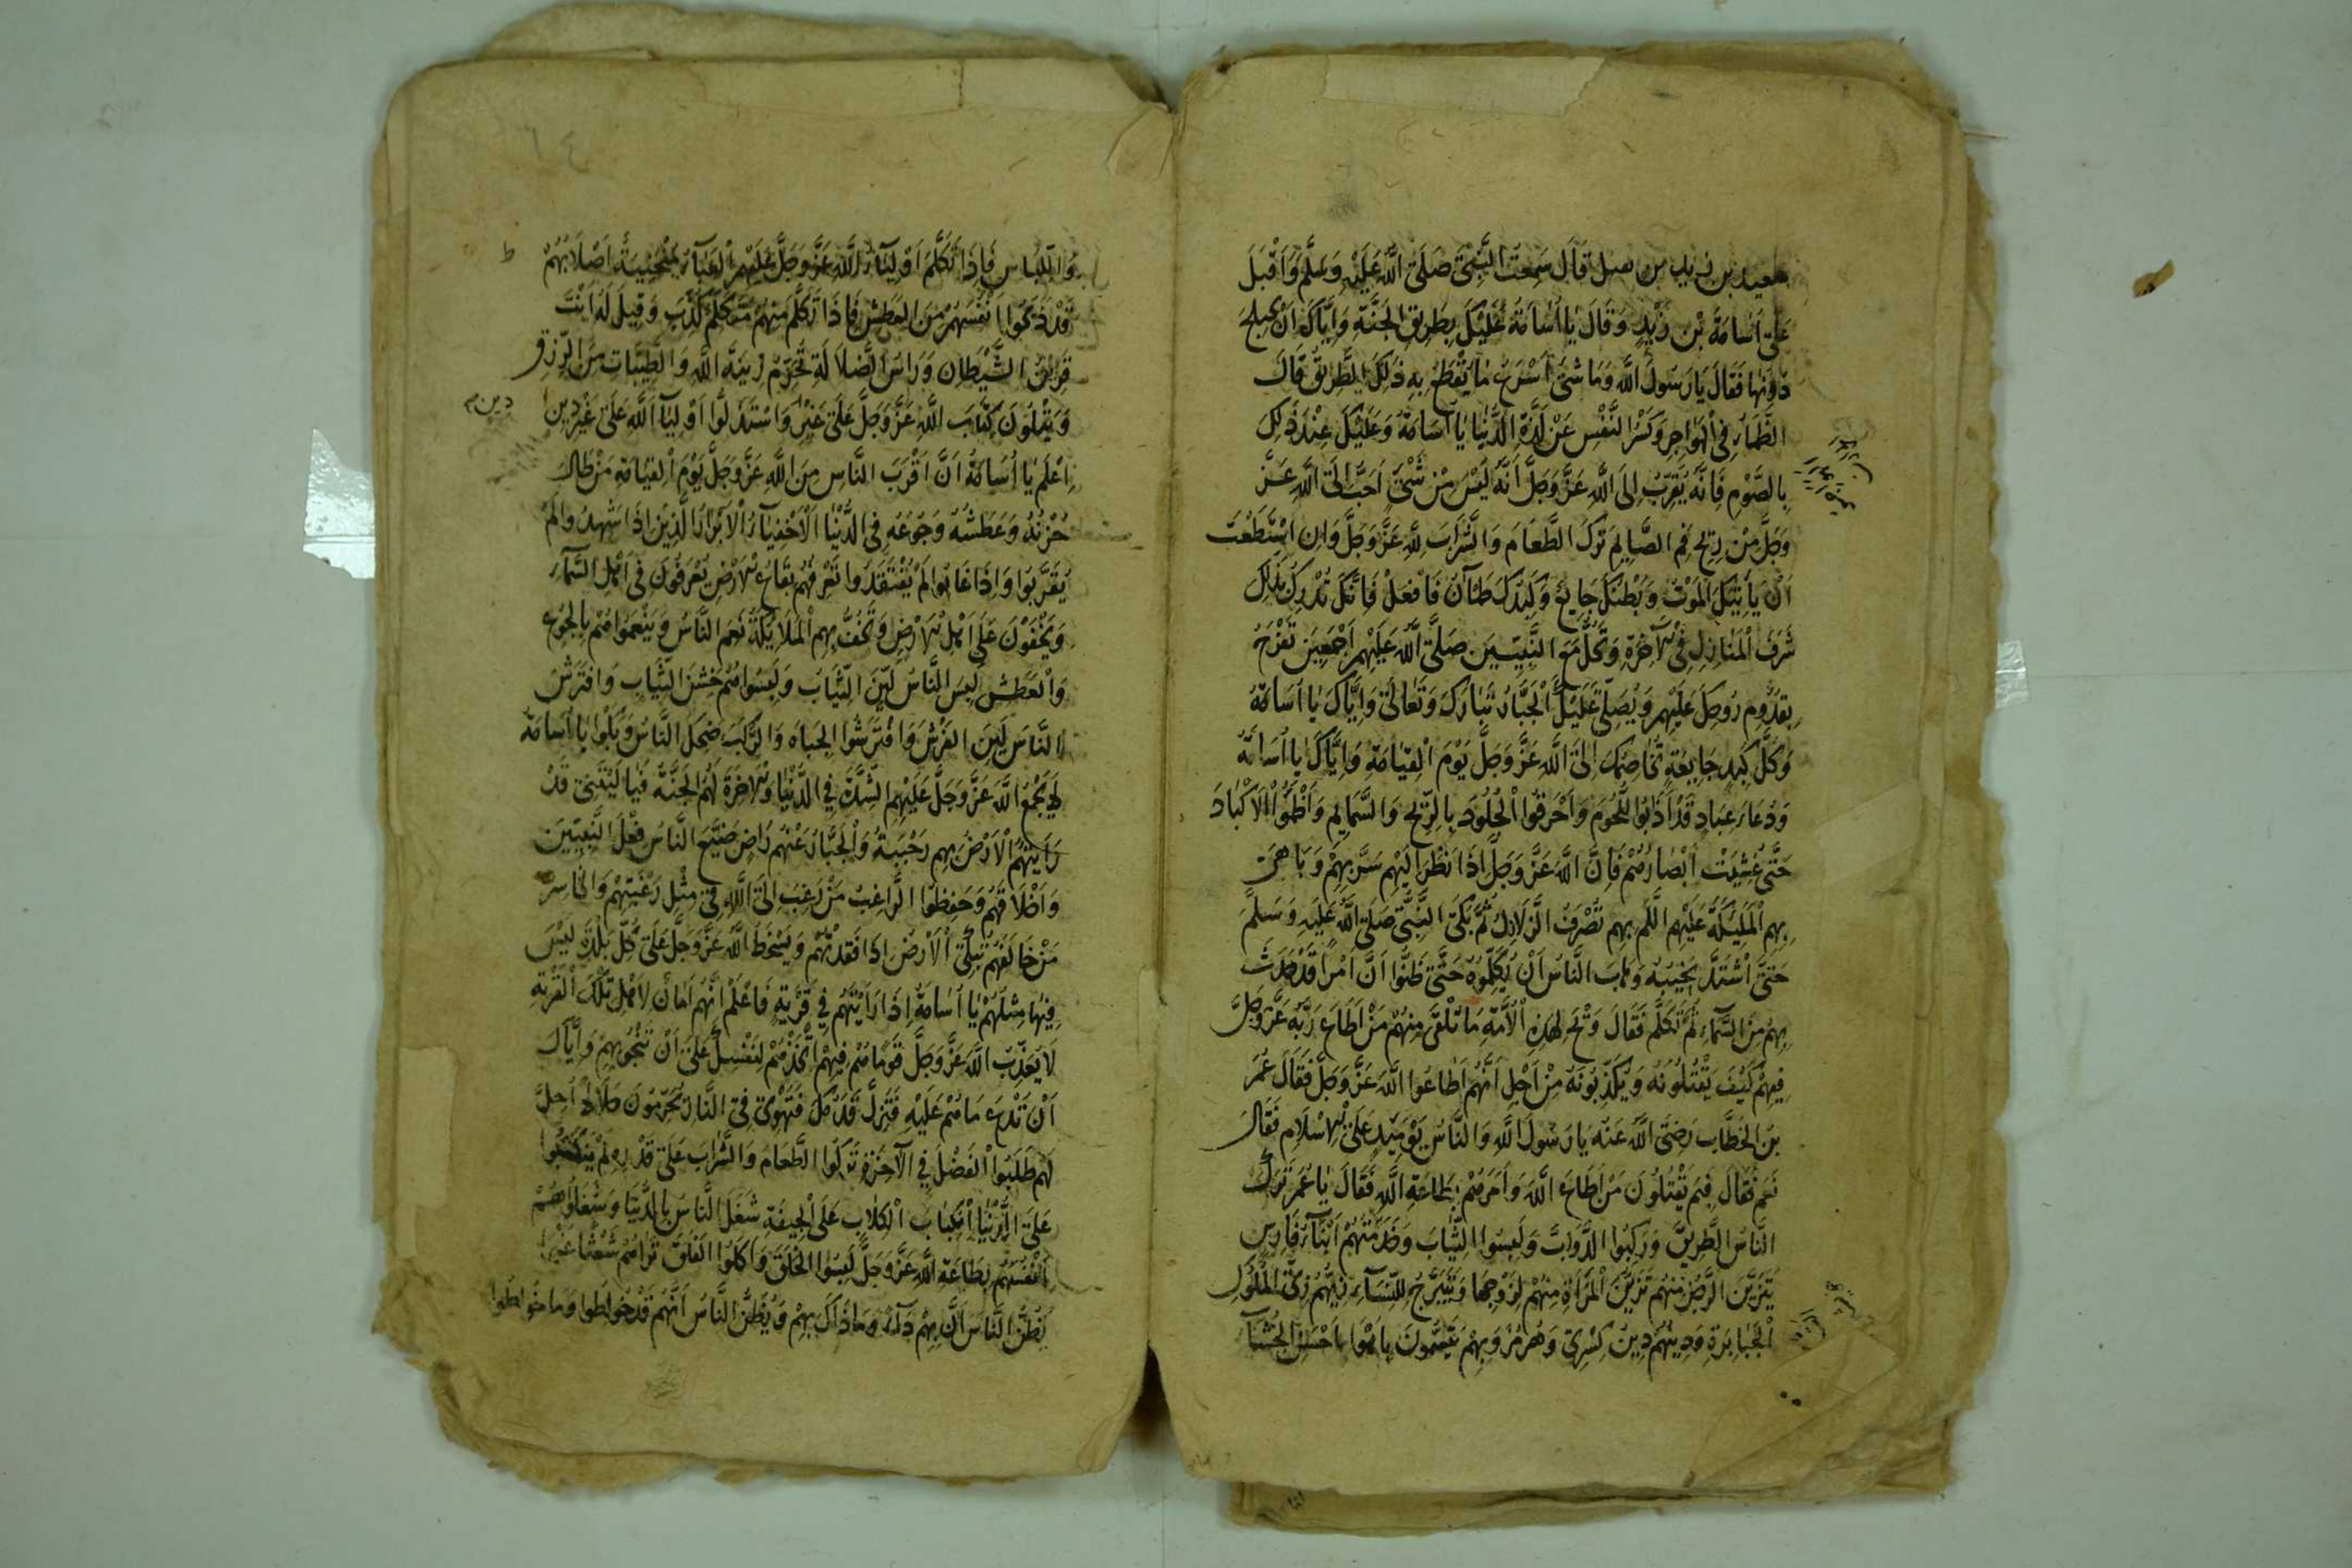 سعيد بن زيد بن نفيل قال سَمِعتُ النَّبِيَّ صَلَّى اللَّهُ عَلَيْهِ وَسَلَّمَ وَاَقْبَلَ
عَلَى اُسَامَةَ بْنِ زَيْدٍ وَقَالَ يَا اُسَامَةُ عَلَيْكَ بِطَرِيْقِ الْجَنَّةِ وَاِيَّاكَ اَنْ تَخْتَلِجَ
دُوْنَهَا فَقَالَ يَا رَسُوْلَ اللَّهِ وَمَا شَئٌ اَسْرَعُ مَا يُقْطَعُ بِهِ ذٰلِكَ الطَّرِيْقُ قَالَ
الظَّمَاءُ فِي الْهَوَاجِرِ وَكَسْرُ النَّفْسِ عَنْ لَذَّةِ الدُّنْيَا يَا اُسَامَةُ وَعَلَيْكَ عِنْدَ ذٰلِكَ
بِالصَّوْمِ فَاِنَّهُ يُقَرِّبُ اِلَى اللَّهِ عَزَّ وَجَلَّ اَنَّهُ لَيْسَ مِنْ شَيْءٍ اَحَبَّ اِلَى اللَّهِ عَزَّ
وَجَلَّ مِنْ رِيْحِ فَمِ الصَّايِمِ تَرَكَ الطَّعَامَ وَالشَّرَابَ لِلّهِ عَزَّ وَجَلَّ وَاِنِ اسْتَطَعْتَ
اَنْ يَاْتِيَكَ الْمَوْتُ وَبَطْنُكَ جَايِعٌ وَكَبِدُكَ ظَمْآنُ فَافْعَلْ فَاِنَّكَ تُدْرِكُ بِذٰلِكَ
شَرَفَ الْمَنَازِلِ فِي الْآخِرَةِ وَتَحُلُّ مَعَ النَّبِيِّيْنَ صَلَّى اللَّهُ عَلَيْهِمْ اَجْمَعِيْنَ تَفْرَحُ
بِقُدُوْمِ رُوْحِكَ عَلَيْهِمْ وَيُصَلِّيْ عَلَيْكَ الْجَبَّارُ تَبَارَكَ وَتَعَالٰى وَاِيَّاكَ يَا اُسَامَةُ
وَكُلَّ كَبِدٍ جَايِعَةٍ تُخَاصِمُكَ اِلَى اللَّهِ عَزَّ وَجَلَّ يَوْمَ الْقِيَامَةِ وَاِيَّاكَ يَا اُسَامَةُ
وَدُعَاءَ عِبَادٍ قَدْ اَذَابُوا اللُّحُوْمَ وَاَحْرَقُوا الْجُلُوْدَ بِالرِّيْحِ وَالسَّمَايِمِ وَاَظْمَؤُا الْاَكْبَادَ
حَتَّى غُشِيَتْ اَبْصَارُهُمْ فَاِنَّ اللَّهَ عَزَّ وَجَلَّ اِذَا نَظَرَ اِلَيْهِمْ سَرَّ بِهِمْ وَبَاهٰى
بِهِمُ الْمَلٰئِكَةَ عَلَيْهِمُ السَّلَمُ بِهِمْ تُصْرَفُ الزَّلَازِلُ ثُمَّ بَكَى النَّبِيُّ صَلَّى اللَّهُ عَلَيْهِ وَسَلَّمَ
حَتَّى اشْتَدَّ نَحِيْبُهُ وَهَابَ النَّاسُ اَنْ يُكَلِّمُوْهُ حَتَّى ظَنُّوْا اَنَّ اَمْرًا قَدْ حَدَثَ
بِهِمْ مِنَ السَّمَآءِ ثُمَّ تَكَلَّمَ فَقَالَ وَيْحَ لِهٰذِهِ الْاُمَّةِ مَا تَلْقٰى مِنْهُمْ مَنْ اَطَاعَ رَبَّهُ عَزَّ وَجَلَّ
فِيْهِمْ كَيْفَ يَقْتُلُوْنَهُ وَيُكَذِّبُوْنَهُ مِنْ اَجْلِ اَنَّهُمْ اَطَاعُوا اللَّهَ عَزَّ وَجَلَّ فَقَالَ عُمَرُ
بْنُ الْخَطَّابِ رَضِيَ اللَّهُ عَنْهُ يَا رَسُوْلَ اللَّهِ وَالنَّاسُ يَوْمَئِذٍ عَلَى الْاِسْلَامِ فَقَالَ
نَعَمْ فَقَالَ فِيْمَ يَقْتُلُوْنَ مَنْ اَطَاعَ اللَّهَ وَاَمَرَهُمْ بِطَاعَةِ اللَّهِ فَقَالَ يَا عُمَرُ تَرَكَ
النَّاسُ الطَّرِيْقَ وَرَكِبُوا الدَّوَابَّ وَلَبِسُوا الثِّيَابَ وَخَدَمَتْهُمْ اَبْنَآءُ فَارِسٍ
يَتَزَيَّنُ الرَّجُلُ مِنْهُمْ تَزَيُّنَ الْمَرْاَةِ مِنْهُمْ لِزَوْجِهَا وَتَتَبَرَّجُ النِّسَآءُ زِيُّهُمْ زِيُّ الْمُلُوْكِ
الْجَبَابِرَةِ وَدِيْنُهُمْ دِيْنُ كِسْرٰى وَهُرْمُزَ وَبِهِمْ يَتَسَمَّوْنَ بَاهَوْا بِاَحْسَنِ الْجُشَآءِ
وَاللِّبَاسِ فَاِذَا تَكَلَّمَ اَوْلِيَآءُ اللَّهِ عَزَّ وَجَلَّ عَلَيْهِمُ الْعَبَآءُ مُنْحَنِيَةً اَصْلَابُهُمْ
قَدْ ذَبَحُوْا اَنْفُسَهُمْ مِنَ الْعَطَشِ فَاِذَا تَكَلَّمَ مِنْهُمْ مُتَكَلِّمٌ كُذِّبَ وَقِيْلَ لَهُ اَنْتَ
قَرِيْنُ الشَّيْطَانِ وَرَاْسُ الضَّلَالَةِ تُحَرِّمُ زِيْنَةَ اللَّهِ وَالطَّيِّبَاتِ مِنَ الرِّزْقِ
وَيَتْلُوْنَ كِتَابَ اللَّهِ عَزَّ وَجَلَّ عَلَى غَيْرِ وَاسْتَذَلُّوْا اَوْلِيَآءَ اللَّهِ عَلَى غَيْرِ دِيْنٍ
اِعْلَمْ يَا اُسَامَةُ اَنَّ اَقْرَبَ النَّاسِ مِنَ اللَّهِ عَزَّ وَجَلَّ يَوْمَ الْقِيَامَةِ مَنْ طَالَ
حُزْنُهُ وَعَطَشُهُ وَجُوْعُهُ فِي الدُّنْيَا الْاَخْفِيَآءُ الْاَبْرَارُ الَّذِيْنَ اِذَا شَهِدُوا لَمْ
يُقَرَّبُوْا وَاِذَا غَابُوْا لَمْ يُفْتَقَدُوْا تَعْرِفُهُمْ بِقَاعُ الْاَرْضِ يُعْرَفُوْنَ فِيْ اَهْلِ السَّمَآءِ
وَيَخْفَوْنَ عَلٰى اَهْلِ الْاَرْضِ وَتَحُفُّ بِهِمُ الْمَلَايِكَةُ نَعِمَ النَّاسُ وَيَنْعَمُوا هُمْ بِالْجُوْعِ
وَالْعَطَشِ لَبِسَ النَّاسُ لَيِّنَ الثِّيَابِ وَلَبِسُوْا هُمْ خَشِنَ الثِّيَابِ وَافْتَرَشَ
النَّاسُ لَيِّنَ الْفَرْشِ وَافْتَرَشُوا الْجِبَاهَ وَالرُّكَبَ ضَحِكَ النَّاسُ وَبَكَوْا يَا اُسَامَةُ
لَا يَجْمَعُ اللَّهُ عَزَّ وَجَلَّ عَلَيْهِمُ الشِّدَّةَ فِي الدُّنْيَا وَالْآخِرَةِ لَهُمُ الْجَنَّةُ فَيَا لَيْتَنِيْ قَدْ
رَاَيْتُهُمُ الْاَرْضُ بِهِمْ رَحِيْبَةٌ وَالْجَبَّارُ عَنْهُمْ رَاضٍ ضَيَّعَ النَّاسُ فِعْلَ النَّبِيِّيْنَ
وَاَخْلَاقَهُمْ وَحَفِظُوْا الرَّاغِبُ مَنْ رَغِبَ اِلَى اللَّهِ فِيْ مِثْلِ رَغْبَتِهِمْ وَالْخَاسِرُ
مَنْ خَالَفَهُمْ تَبْكِي الْاَرْضُ اِذَا فَقَدَتْهُمْ وَيَسْخَطُ اللَّهُ عَزَّ وَجَلَّ عَلَى كُلِّ بَلْدَةٍ لَيْسَ
فِيْهَا مِثْلُهُمْ يَا اُسَامَةُ اِذَا رَاَيْتَهُمْ فِيْ قَرْيَةٍ فَاعْلَمْ اَنَّهُمْ اَمَانٌ لِاَهْلِ تِلْكَ الْقَرْيَةِ
لَا يُعَذِّبُ اللَّهُ عَزَّ وَجَلَّ قَوْمًا هُمْ فِيْهِمْ اتَّخِذْهُمْ لِنَفْسِكَ عَلٰى اَنْ تَنْجُوَ بِهِمْ وَاِيَّاكَ
اَنْ تَدَعَ مَا هُمْ عَلَيْهِ فَتَزِلَّ قَدَمُكَ فَتَهْوِيَ فِي النَّارِ يُحَرِّمُوْنَ حَلَالًا اُحِلَّ
لَهُمْ طَلَبُوا الْفَضْلَ فِي الْآخِرَةِ تَرَكُوا الطَّعَامَ وَالشَّرَابَ عَلٰى قُدْرَةٍ لَمْ يَنْكَبُّوْا
عَلَى الدُّنْيَا اِنْكِبَابَ الْكِلَابِ عَلَى الْجِيْفَةِ شُغِلَ النَّاسُ بِالدُّنْيَا وَشَغَلُوْا هُمْ
اَنْفُسَهُمْ بِطَاعَةِ اللَّهِ عَزَّ وَجَلَّ لَبِسُوا الْخَلَقَ وَاَكَلُوا الْفَلَقَ تَرَاهُمْ شُعْثًا غُبْرًا
يَظُنُّ النَّاسُ اَنَّ بِهِمْ دَآءً وَمَا ذَاكَ بِهِمْ وَيَظُنُّ النَّاسُ اَنَّهُمْ قَدْ خُوْلِطُوا وَمَا خُوْلِطُوا